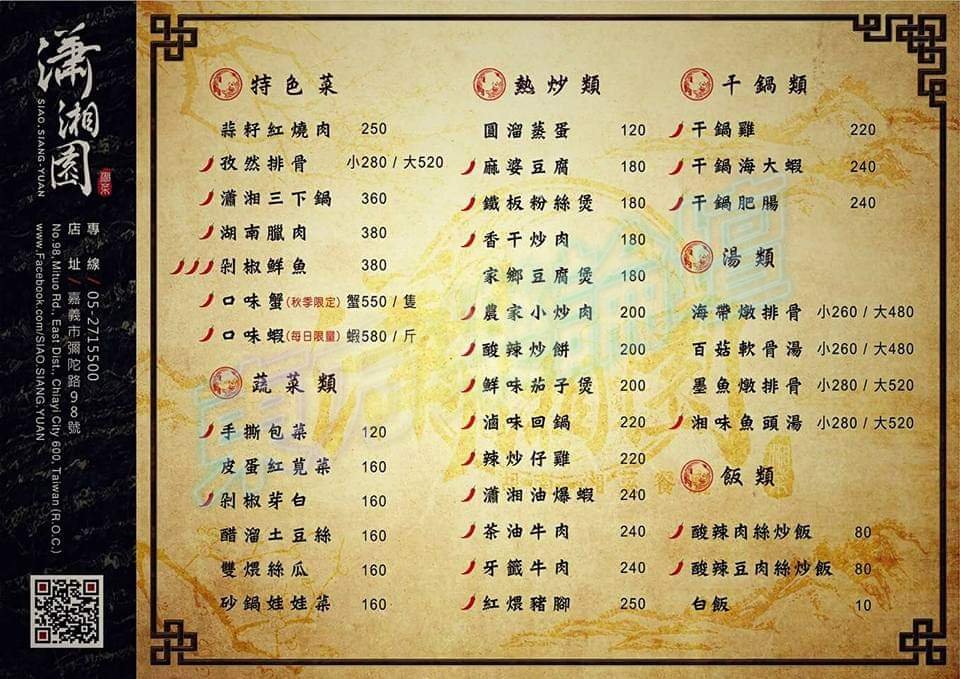 瀟湘園
SIAO, SIANG-YUAN
湘菜
專線/05-2715500
店址/嘉義市彌陀路98號
No.98, Mituo Rd., East Dist., Chiayi City 600, Taiwan (R.O.C.)
www.Facebook.com/SIAO.SIANG.YUAN
特色菜
蒜籽紅燒肉 250
孜然排骨 小280 / 大520
瀟湘三下鍋 360
湖南臘肉 380
剁椒鮮魚 380
口味蟹(秋季限定) 蟹550 / 隻
口味蝦(每日限量) 蝦580 / 斤
蔬菜類
手撕包菜 120
皮蛋紅莧菜 160
剁椒芽白 160
醋溜土豆絲 160
雙煨絲瓜 160
砂鍋娃娃菜 160
熱炒類
圓溜蒸蛋 120
麻婆豆腐 180
鐵板粉絲煲 180
香干炒肉 180
家鄉豆腐煲 180
農家小炒肉 200
酸辣炒餅 200
鮮味茄子煲 200
滷味回鍋 220
辣炒仔雞 220
瀟湘油爆蝦 240
茶油牛肉 240
牙籤牛肉 240
紅煨豬腳 250
干鍋類
干鍋雞 220
干鍋海大蝦 240
干鍋肥腸 240
湯類
海帶燉排骨 小260 / 大480
百菇軟骨湯 小260 / 大480
墨魚燉排骨 小280 / 大520
湘味魚頭湯 小280 / 大520
飯類
酸辣肉絲炒飯 80
酸辣豆肉絲炒飯 80
白飯 10